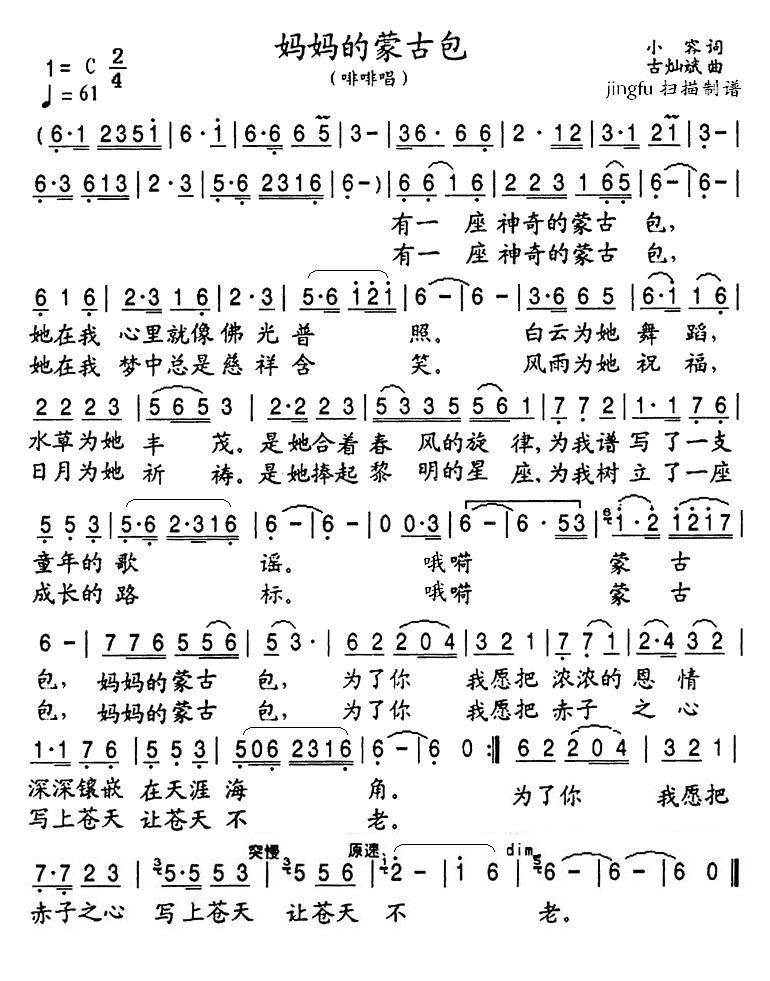 妈妈的蒙古包
(啡啡唱)
1= C 2/4
♩=61
小 容 词
古灿斌 曲
jingfu 扫描制谱
(6·1 2351|6·1|6·6 65|3-|36· 66|2·12|3·1 21|3-|
6·3 613|2·3|5·6 2316|6-)|66 16|223 165|6-|6-|
有一 座 神奇的蒙古 包,
有一 座 神奇的蒙古 包,
61 6|2·3 16|2·3|5·6 121|6-|6-|3·6 65|6·1 16|
她在我 心里就像佛 光 普 照。 白云为她 舞 蹈,
她在我 梦中总是慈 祥 含 笑。 风雨为她 祝 福,
22 23|565 3|2·2 23|5335 561|77 2|1·1 76|
水草为她 丰 茂。是她合着春 风的旋 律,为我谱 写 了一支
日月为她 祈 祷。是她捧起黎 明的星 座,为我树 立 了一座
55 3|5·6 2·316|6-|6-|0 0·3|6-|6·53|1·2 1217|
童年的 歌 谣。 哦嗬 蒙 古
成长的 路 标。 哦嗬 蒙 古
6-|776 556|53·|62 204|32 1|77 1|2·4 32|
包, 妈妈的蒙古 包, 为了你 我愿把 浓浓的 恩 情
包, 妈妈的蒙古 包, 为了你 我愿把 赤子 之 心
1·1 76|55 3|506 2316|6-|6 0:‖62 204|32 1|
深深镶嵌 在天涯 海 角。 为了你 我愿把
写上苍天 让苍天 不 老。
突慢 原速 dim
7·7 23|5·5 53|55 6|2-|1 6|6-|6-|6 0‖
赤子之心 写上苍天 让苍天 不 老。